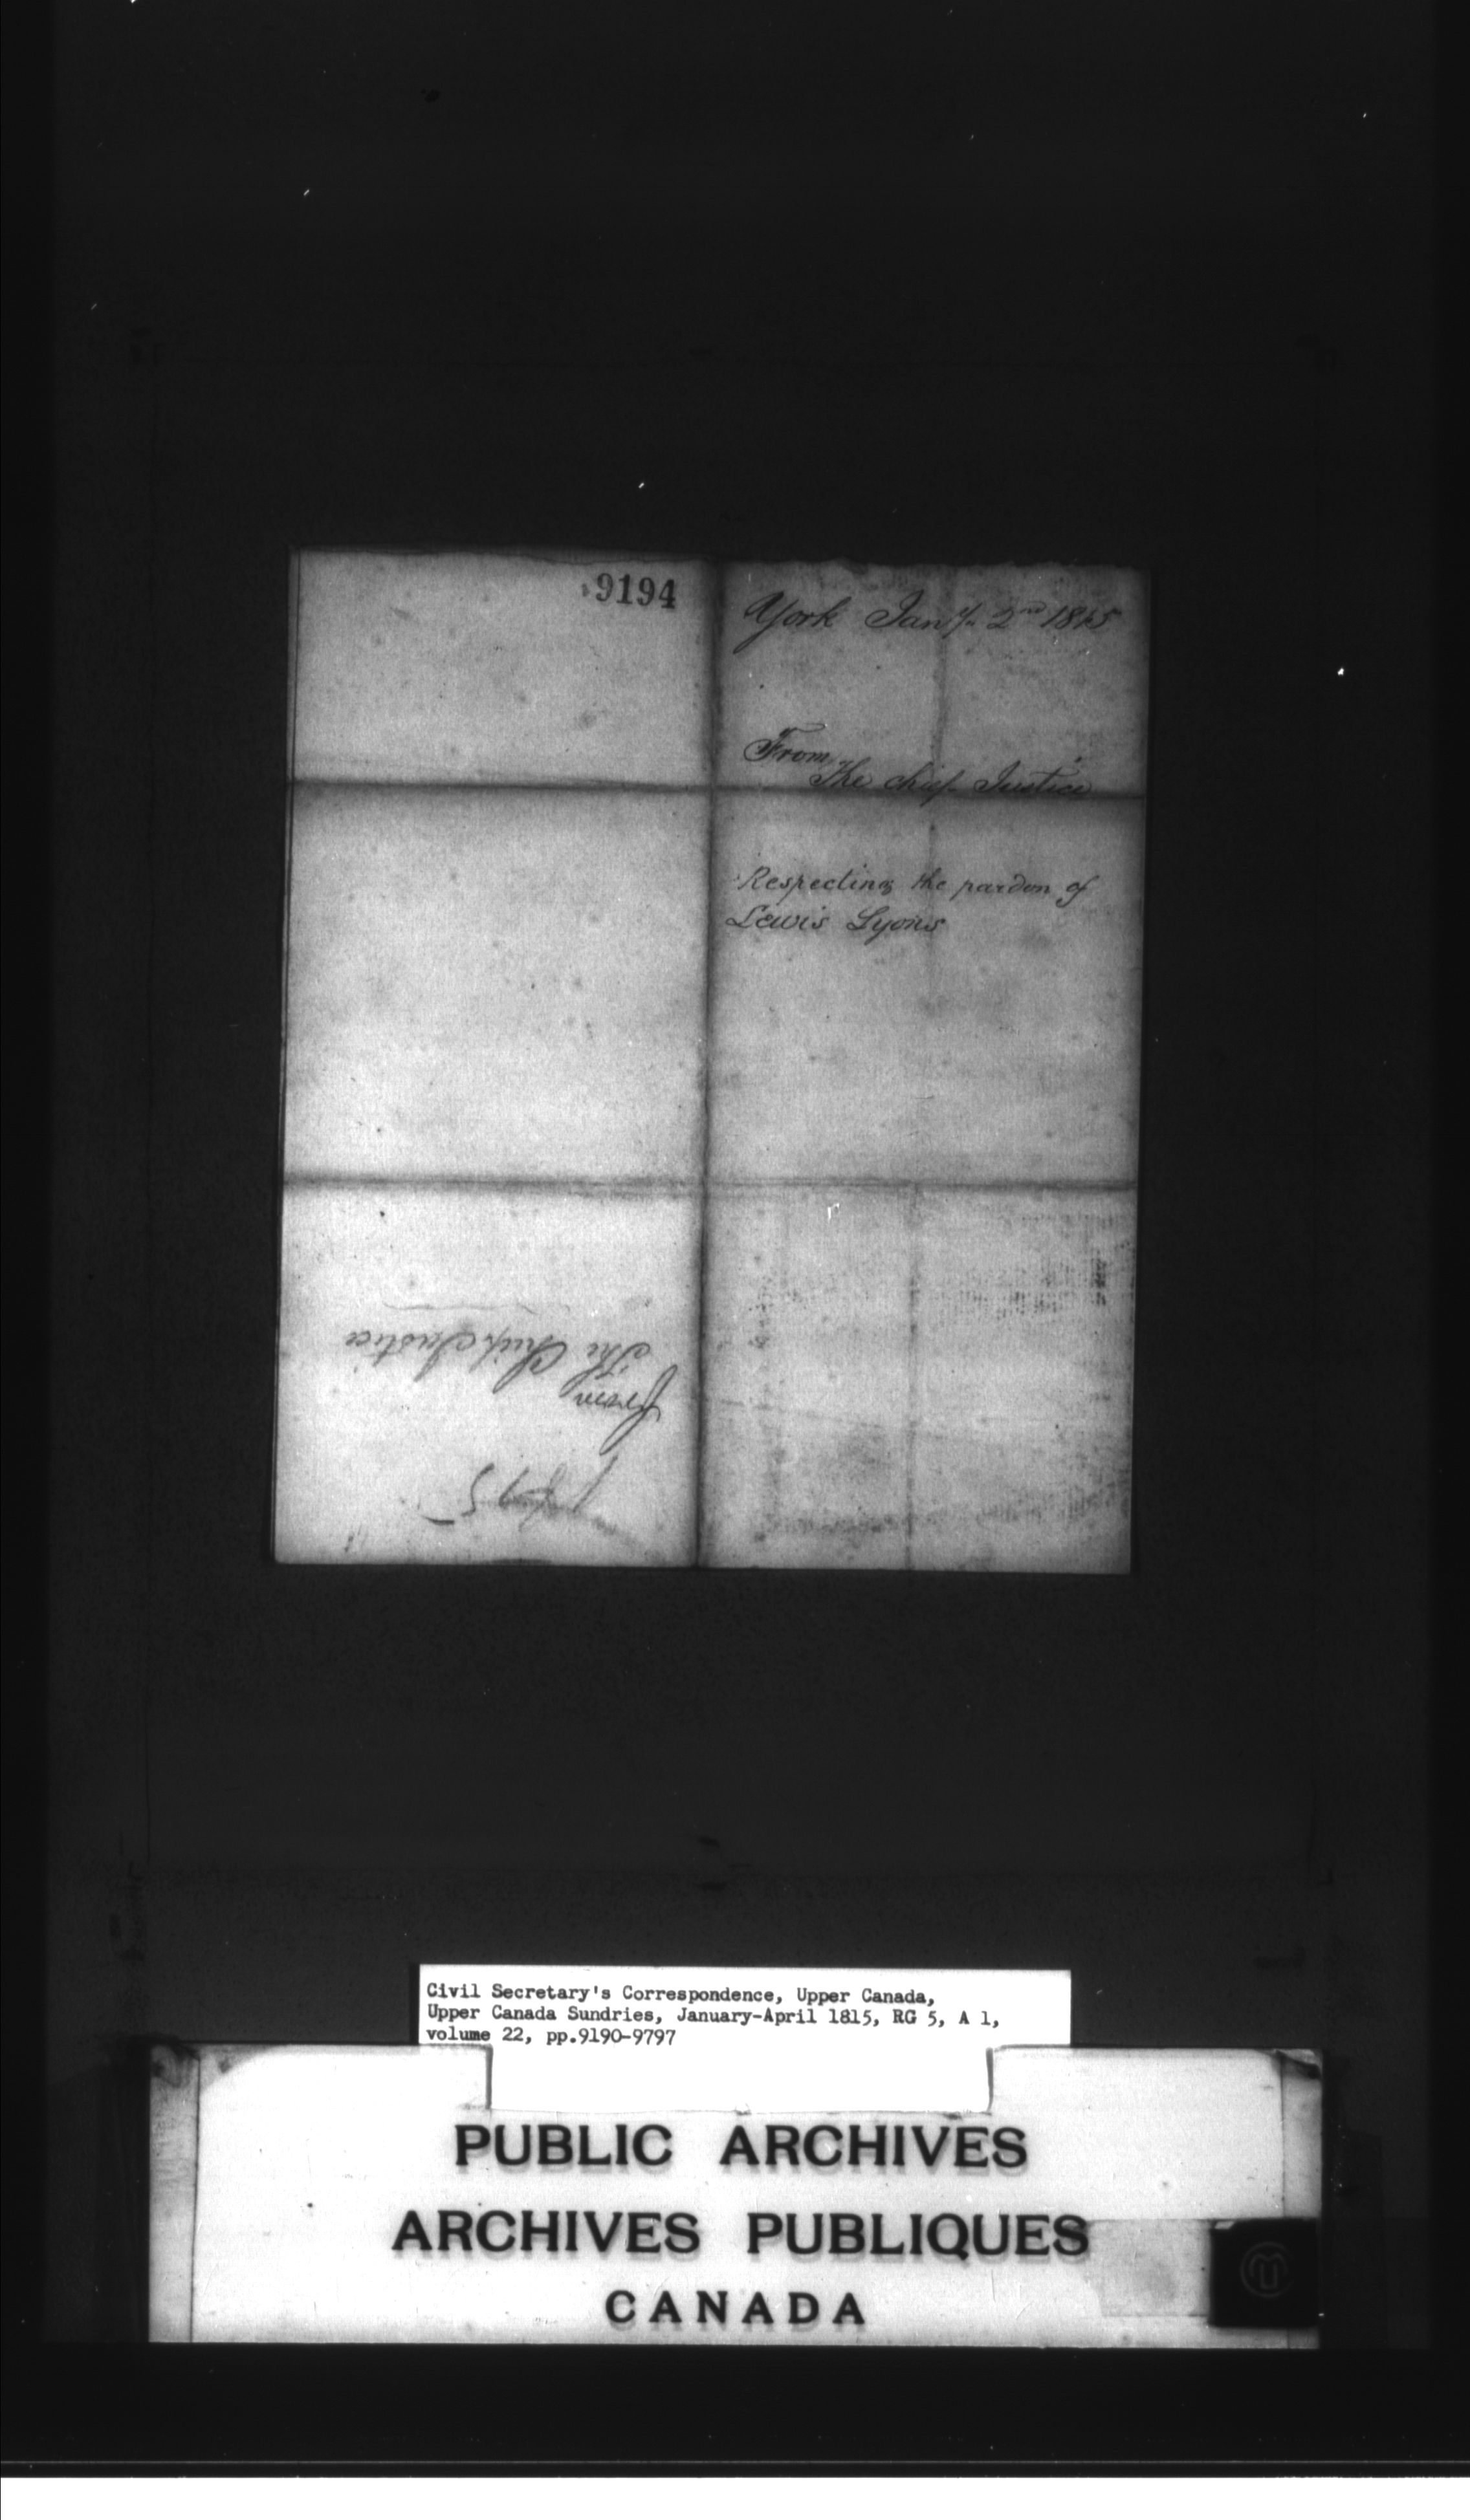 9194
York Jany. 2nd 1815
From
The chief Justice
Respecting the pardon of
Lewis Lyons
From
The Chief Justice
1815
Civil Secretary's Correspondence, Upper Canada,
Upper Canada Sundries, January-April 1815, RG 5, A 1,
volume 22, pp.9190-9797
PUBLIC ARCHIVES
ARCHIVES PUBLIQUES
CANADA